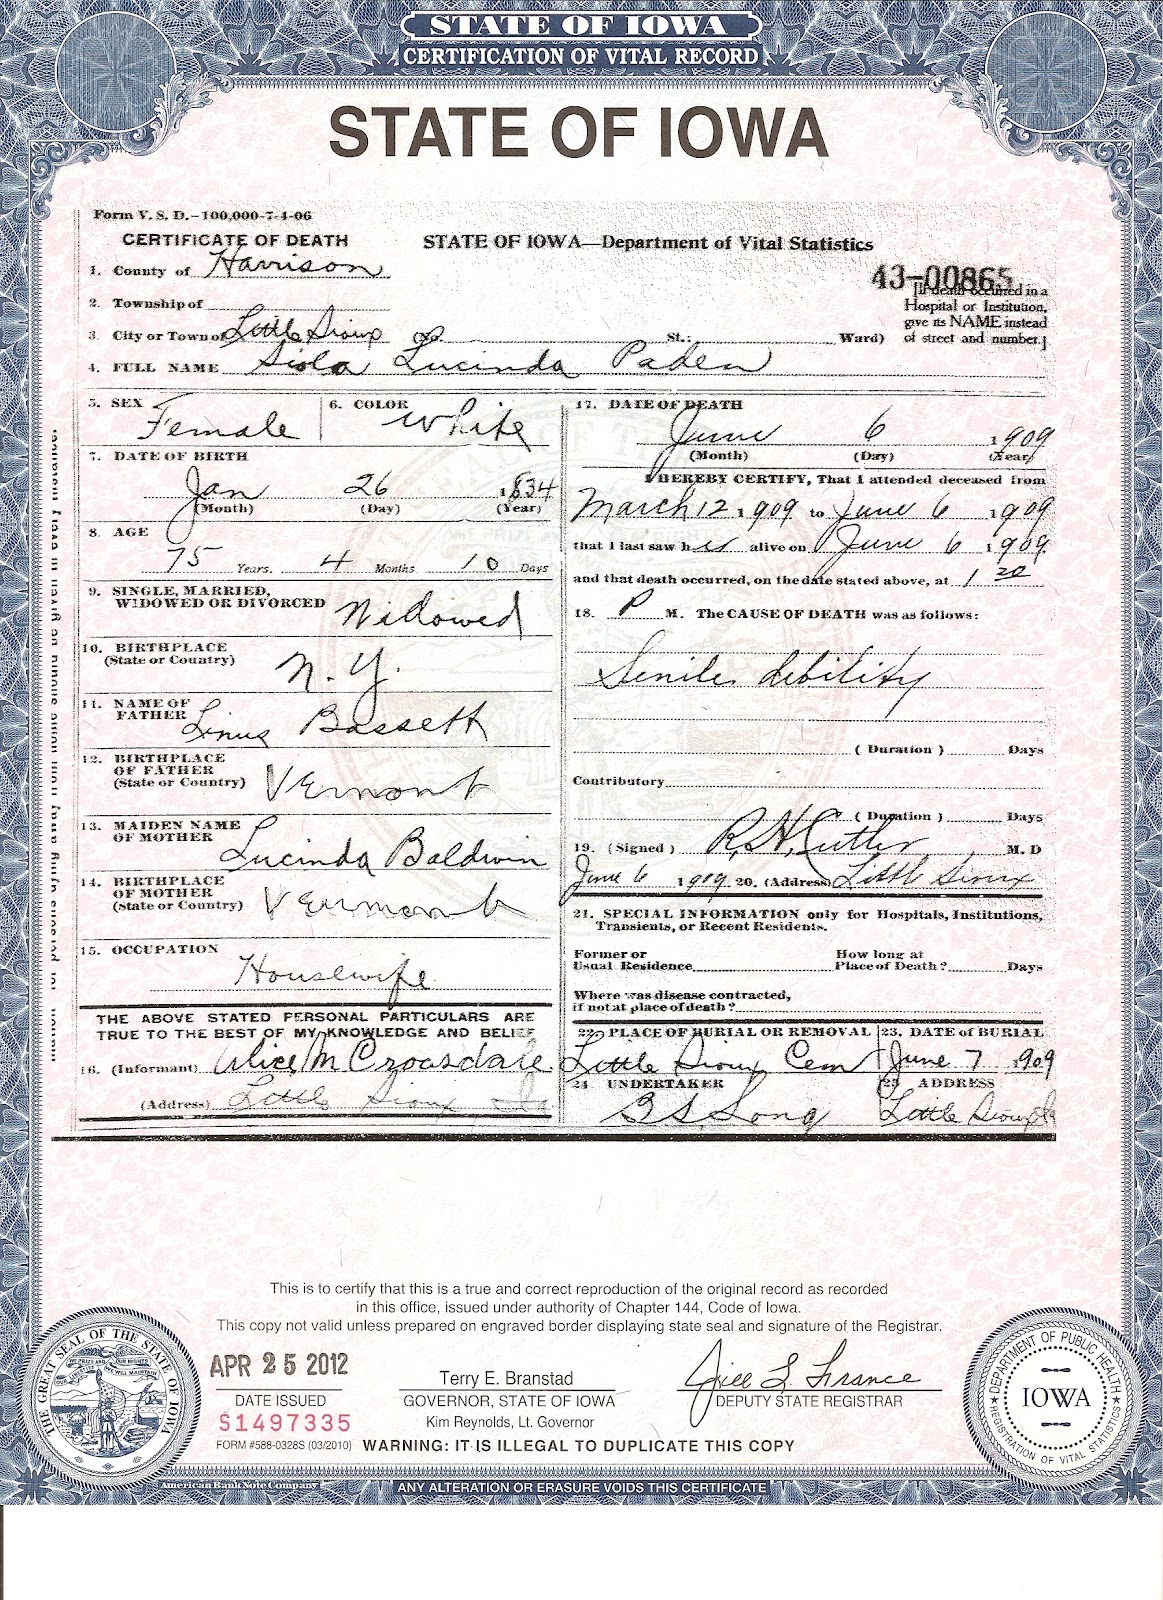 STATE OF IOWA
CERTIFICATION OF VITAL RECORD
STATE OF IOWA
Form V. S. D.—100,000-7-4-06
CERTIFICATE OF DEATH
STATE OF IOWA—Department of Vital Statistics
1. County of Harrison
43-00865
2. Township of
[If death occurred in a Hospital or Institution, give its NAME instead of street and number.]
3. City or Town of Little Sioux (No. St.; Ward)
4. FULL NAME Siola Lucinda Paden
5. SEX Female
6. COLOR White
7. DATE OF BIRTH
Jan 26 1834
(Month) (Day) (Year)
8. AGE
75 Years. 4 Months 10 Days
9. SINGLE, MARRIED,
WIDOWED OR DIVORCED Widowed
10. BIRTHPLACE
(State or Country) N.Y.
11. NAME OF
FATHER Linus Bassett
12. BIRTHPLACE
OF FATHER
(State or Country) Vermont
13. MAIDEN NAME
OF MOTHER Lucinda Baldwin
14. BIRTHPLACE
OF MOTHER
(State or Country) Vermont
15. OCCUPATION
Housewife
THE ABOVE STATED PERSONAL PARTICULARS ARE
TRUE TO THE BEST OF MY KNOWLEDGE AND BELIEF
16. (Informant) Alice M Croasdale
(Address) Little Sioux Ia
17. DATE OF DEATH
June 6 1909
(Month) (Day) (Year)
I HEREBY CERTIFY, That I attended deceased from
March 12 1909 to June 6 1909
that I last saw her alive on June 6 1909
and that death occurred, on the date stated above, at 1 20
18. P M. The CAUSE OF DEATH was as follows:
Senile debility
(Duration) Days
Contributory
(Duration) Days
19. (Signed) R. H. Cutler M. D
June 6 1909 20. (Address) Little Sioux
21. SPECIAL INFORMATION only for Hospitals, Institutions,
Transients, or Recent Residents.
Former or
Usual Residence
How long at
Place of Death? Days
Where was disease contracted,
if not at place of death?
22. PLACE OF BURIAL OR REMOVAL
Little Sioux Cem
23. DATE of BURIAL
June 7 1909
24 UNDERTAKER
B S Long
25 ADDRESS
Little Sioux Ia
This is to certify that this is a true and correct reproduction of the original record as recorded
in this office, issued under authority of Chapter 144, Code of Iowa.
This copy not valid unless prepared on engraved border displaying state seal and signature of the Registrar.
THE GREAT SEAL OF THE STATE OF IOWA
APR 25 2012
DATE ISSUED
S1497335
FORM #588-0328S (03/2010)
Terry E. Branstad
GOVERNOR, STATE OF IOWA
Kim Reynolds, Lt. Governor
Jill L. France
DEPUTY STATE REGISTRAR
WARNING: IT IS ILLEGAL TO DUPLICATE THIS COPY
DEPARTMENT OF PUBLIC HEALTH
IOWA
REGISTRATION OF VITAL STATISTICS
American Bank Note Company
ANY ALTERATION OR ERASURE VOIDS THIS CERTIFICATE